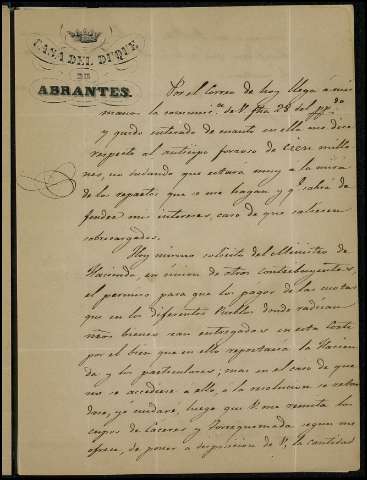 CASA DEL DUQUE
DE
ABRANTES.
Por el Correo de hoy llega á mis
manos la comunic.on de V. fha 28 del pp.do
y quedo enterado de cuanto en ella me dice
respecto al anticipo forzoso de cien millo-
nes, no dudando que estara muy á la mira
de los repartos que se me hagan y q.e sabrá de
fender mis intereses, caso de que saliesen
sobrecargados.
Hoy mismo solicito del Ministro de
Hacienda, en union de otros contribuyentes,
el permiso para que los pagos de las cuotas
que en los diferentes Pueblos donde radican
ntros bienes sean entregadas en esta Corte
por el bien que en ello reportaria la Hacien
da y los particulares; mas en el caso de que
no se accediese á ello, ó la resolucion se retar
dase, yo cuidaré, luego que V. me remita los
cupos de Cáceres y Torrequemada segun me
ofrece, de poner a disposicion de V. la cantidad